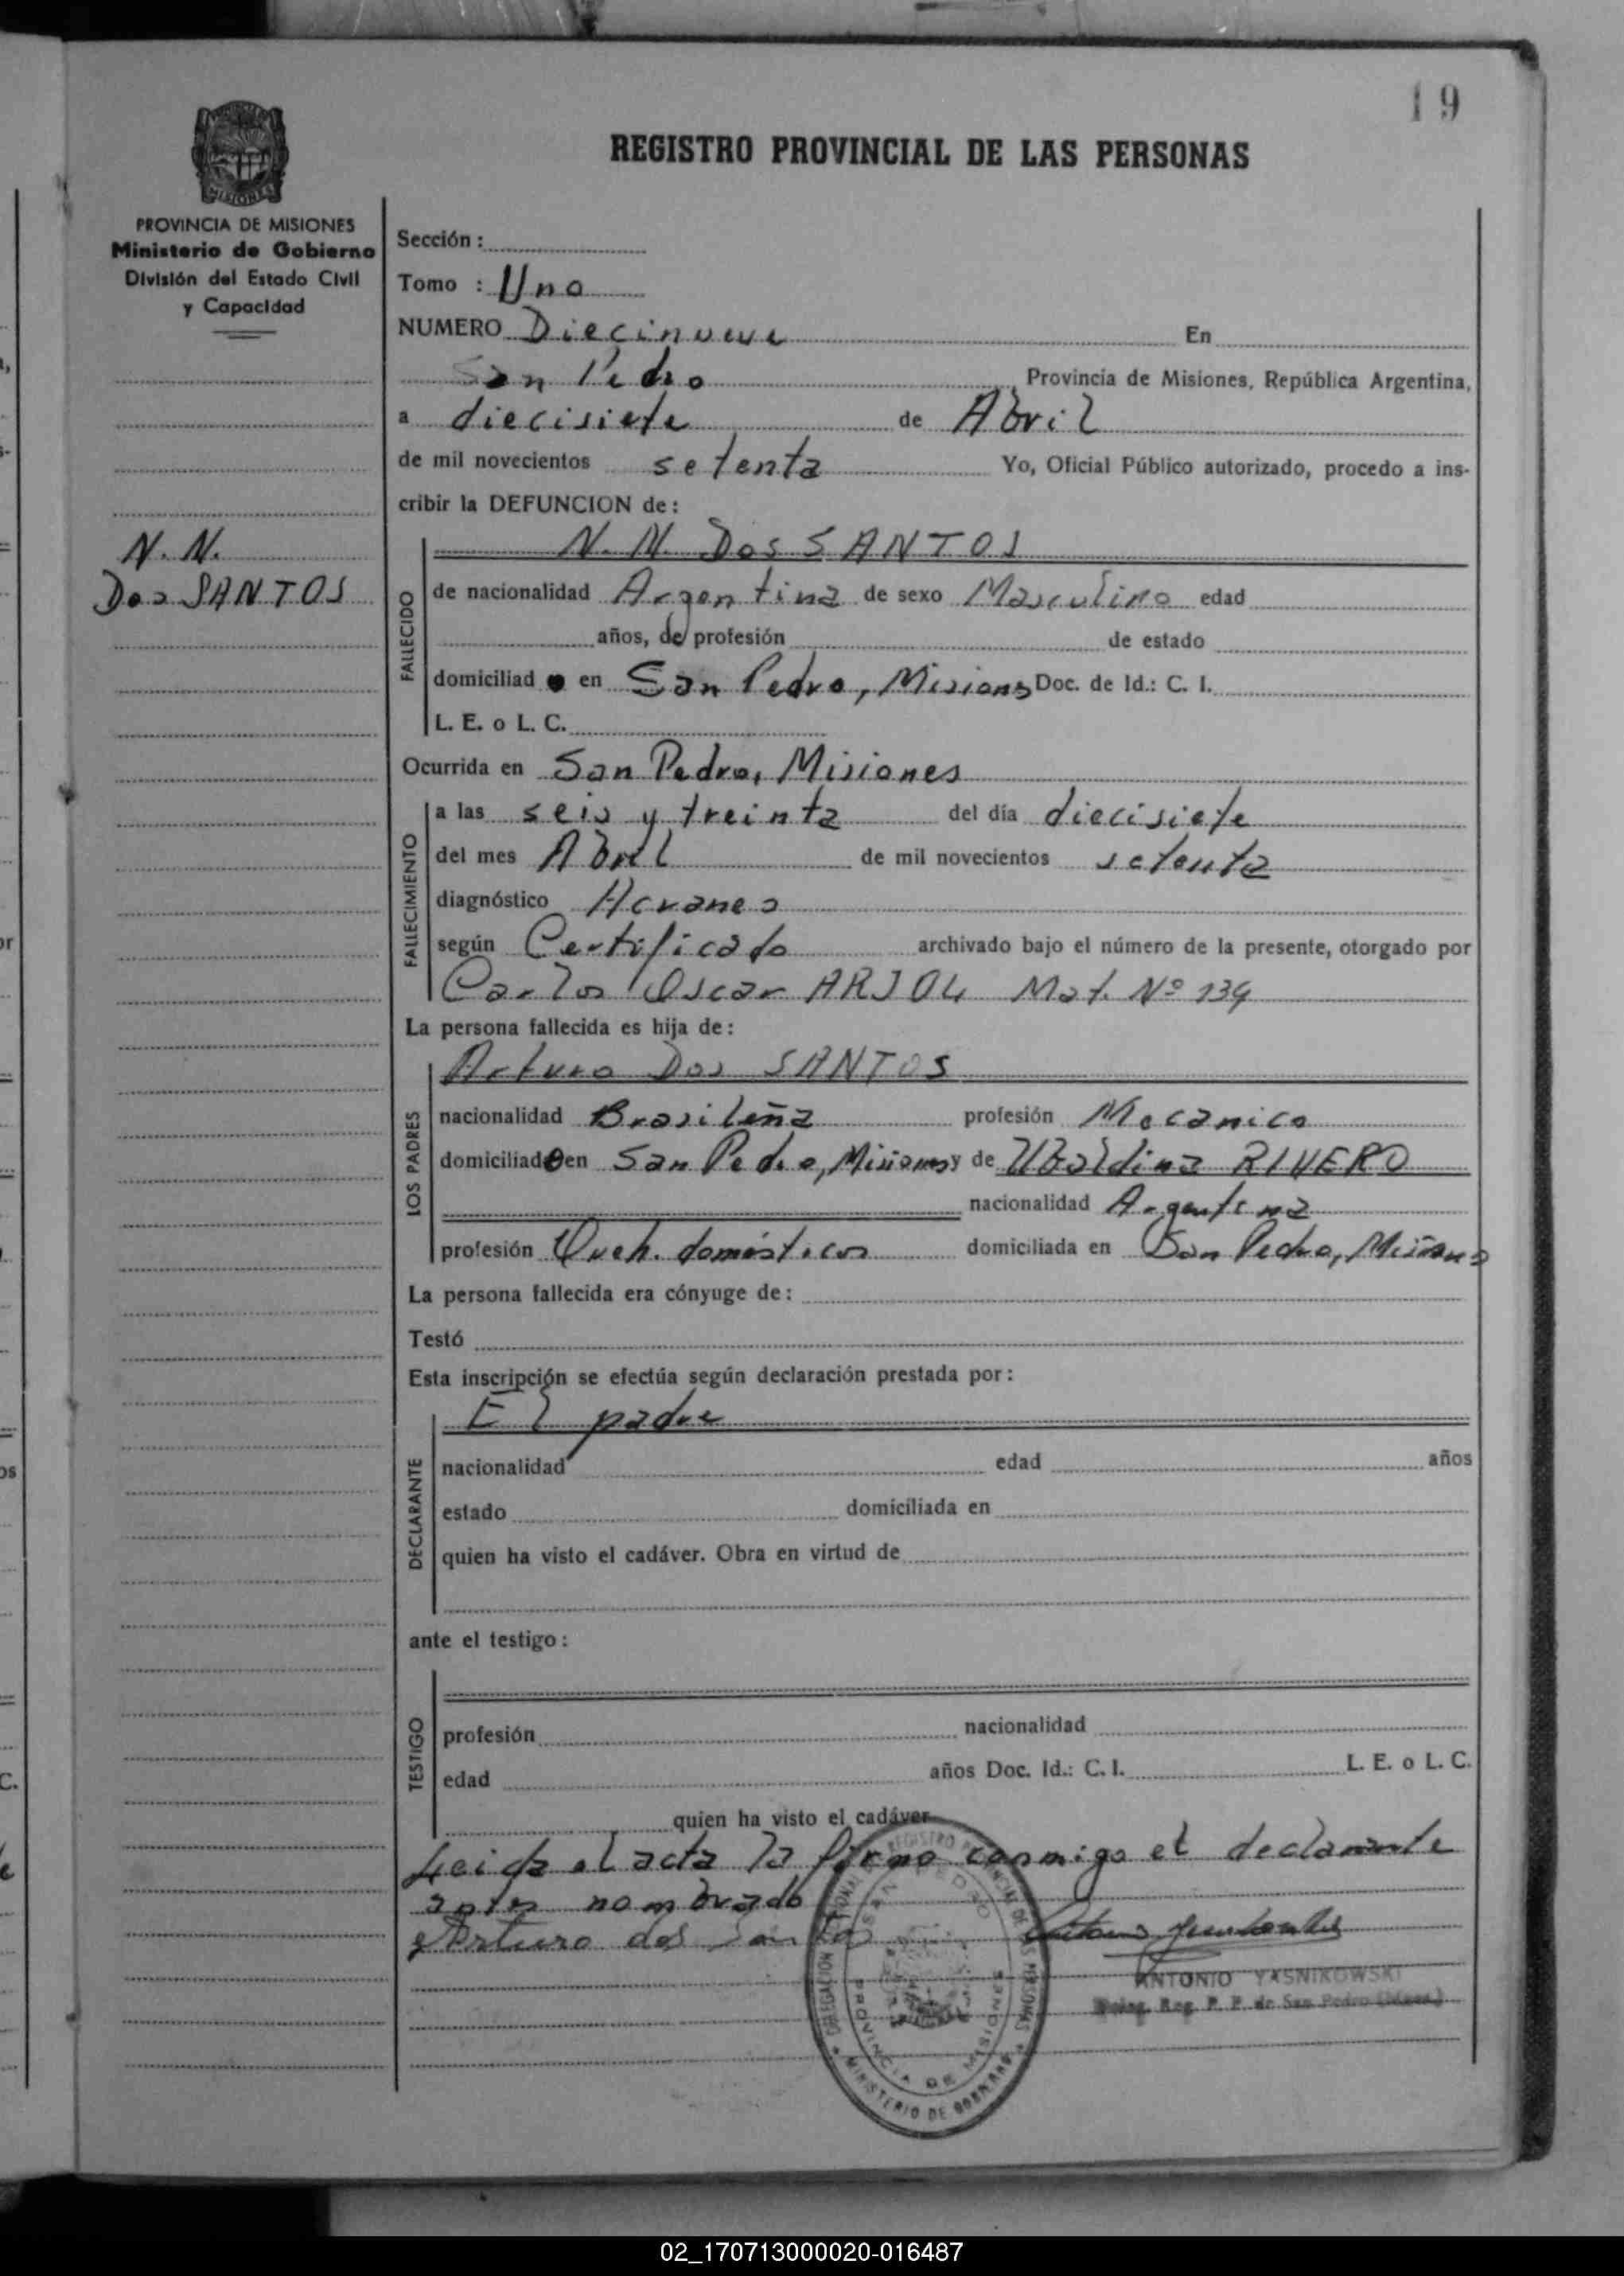 19
REGISTRO PROVINCIAL DE LAS PERSONAS
PROVINCIA DE MISIONES
Ministerio de Gobierno
División del Estado Civil
y Capacidad
N. N.
Dos SANTOS
Sección :
Tomo : Uno
NUMERO Diecinueve En
San Pedro Provincia de Misiones, República Argentina,
a diecisiete de Abril
de mil novecientos setenta Yo, Oficial Público autorizado, procedo a ins-
cribir la DEFUNCION de :
N. N. Dos SANTOS
FALLECIDO
de nacionalidad Argentina de sexo Masculino edad
años, de profesión de estado
domiciliado en San Pedro, Misiones Doc. de Id.: C. I.
L. E. o L. C.
Ocurrida en San Pedro, Misiones
FALLECIMIENTO
a las seis y treinta del día diecisiete
del mes Abril de mil novecientos setenta
diagnóstico
según Certificado archivado bajo el número de la presente, otorgado por
Carlos Oscar ARJOL Mat. Nº 134
La persona fallecida es hija de :
LOS PADRES
Arturo Dos SANTOS
nacionalidad Brasileña profesión Mecanico
domiciliado en San Pedro, Misiones y de Ubaldina RIVERO
nacionalidad Argentina
profesión Queh. domésticos domiciliada en San Pedro, Misiones
La persona fallecida era cónyuge de :
Testó
Esta inscripción se efectúa según declaración prestada por :
DECLARANTE
El padre
nacionalidad edad años
estado domiciliada en
quien ha visto el cadáver. Obra en virtud de
ante el testigo :
TESTIGO
profesión nacionalidad
edad años Doc. Id.: C. I. L. E. o L. C.
quien ha visto el cadáver
Leida el acta la firma conmigo el declarante
antes nombrado
Arturo dos Santos
ANTONIO YASNIKOWSKI
Deleg. Reg. P. P. de San Pedro (Mnes.)
DELEGACION REGISTRO PROVINCIAL DE LAS PERSONAS
SAN PEDRO
PROVINCIA DE MISIONES
MINISTERIO DE GOBIERNO
02_170713000020-016487